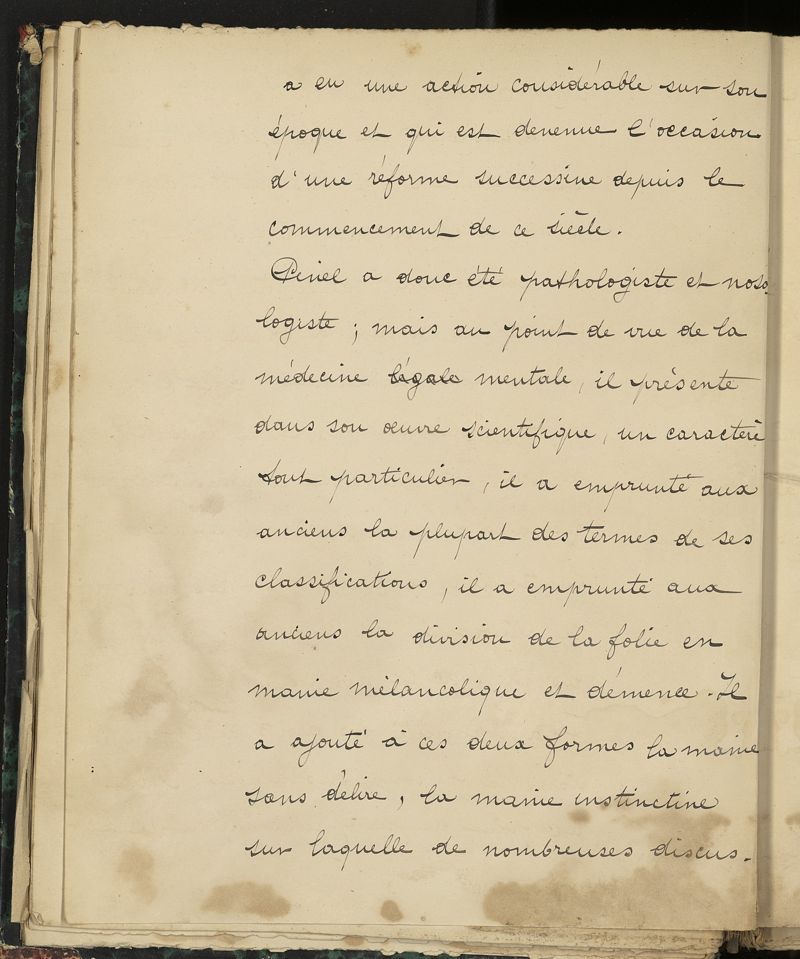 a eu une action considérable sur son
époque et qui est devenue l'occasion
d'une réforme successive depuis le
commencement de ce siècle.
Pinel a donc été pathologiste et noso
logiste ; mais au point de vue de la
médecine légale mentale, il présente
dans son œuvre scientifique, un caractère
tout particulier, il a emprunté aux
anciens la plupart des termes de ses
classifications, il a emprunté aux
anciens la division de la folie en
manie mélancolique et démence. Il
a ajouté à ces deux formes la manie
sans délire, la manie instinctive
sur laquelle de nombreuses discus-